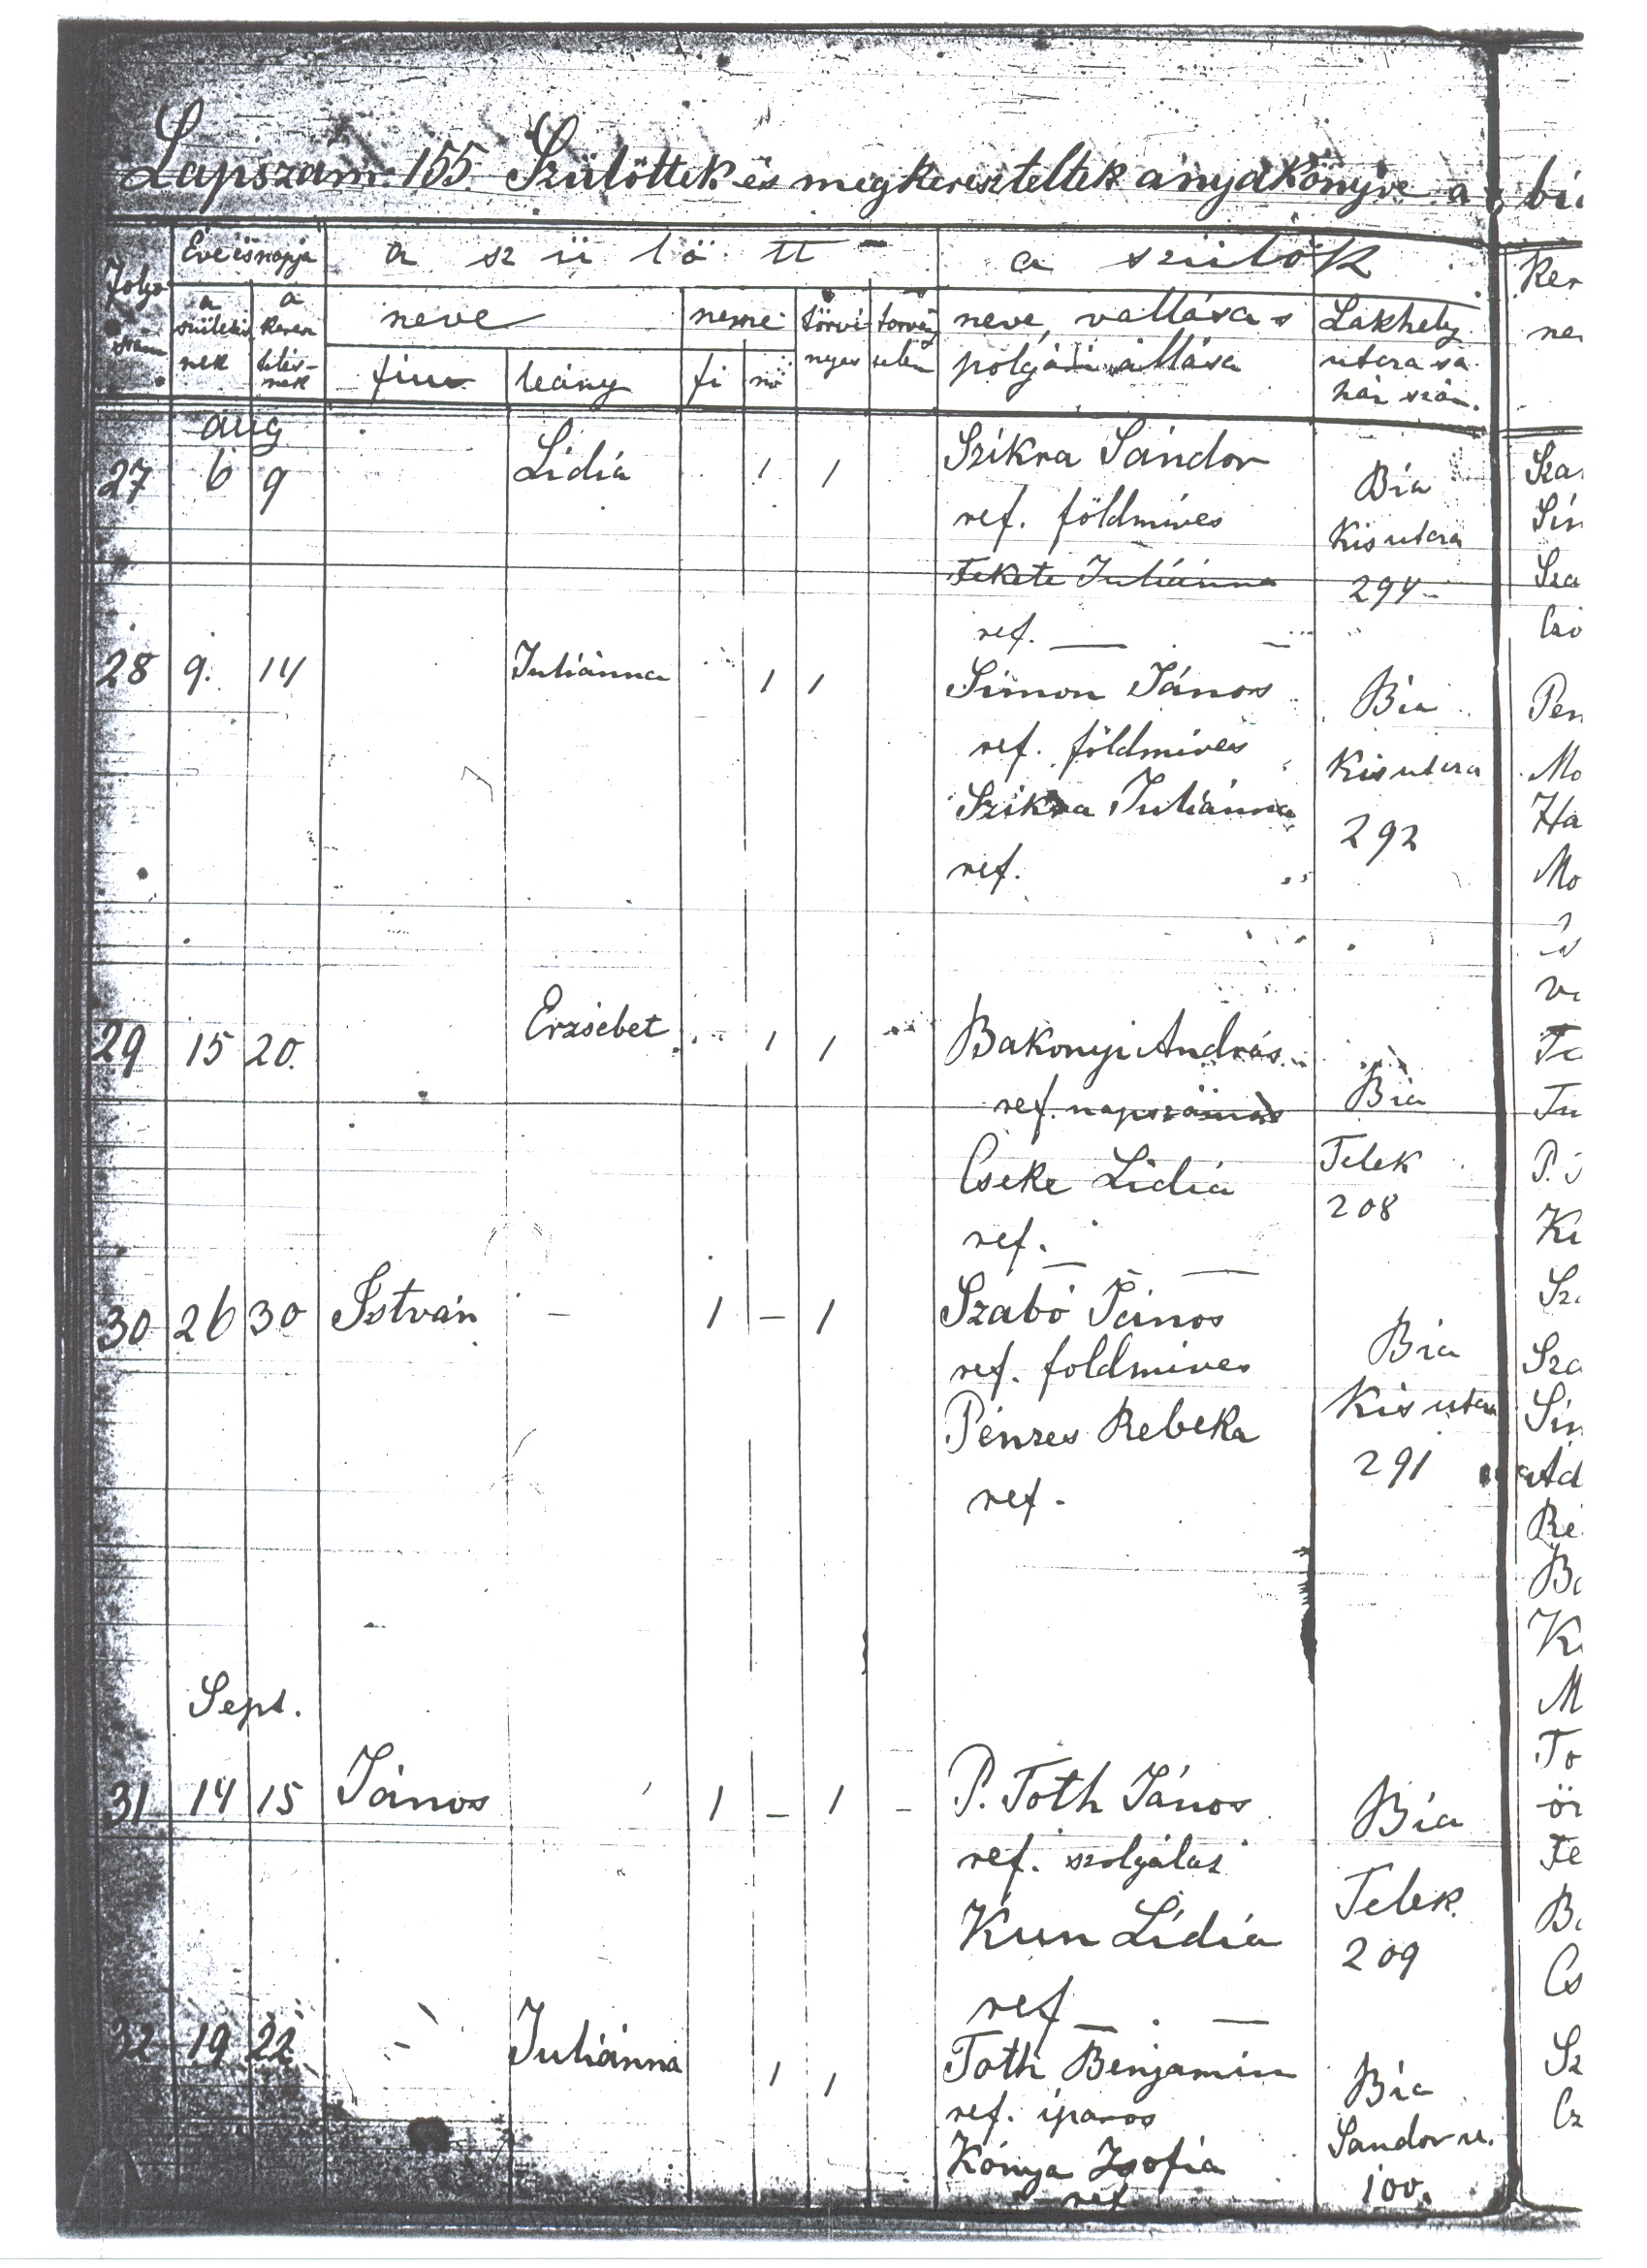 Lapszám: 155. Szülöttek és megkereszteltek anyakönyve a bi
Folyó szám
Éve és napja
a szülött
a szülők
Ker
a születésnek
a keresztelésnek
neve
neme
törvényes
törvénytelen
neve, vallása s
polgári állása
Lakhely
utcza s a
ház szám.
fiu
leány
fi
nő
aug
27 6 9 Lidia 1 1 Szikra Sándor
ref. földmíves
Fekete Juliánna
ref. —
Bia
Kis utcza
294
28 9. 14 Juliánna 1 1 Simon János
ref. földmíves
Szikra Juliánna
ref.
Bia
Kis utcza
292
29 15 20. Erzsébet 1 1 Bakonyi András
ref. napszámos
Cseke Lidia
ref. —
Bia
Telek
208
30 26 30 István – 1 – 1 Szabó János
ref. foldmives
Pénzes Rebeka
ref.
Bia
Kis utcza
291
Sept.
31 14 15 János 1 – 1 – P. Toth János
ref. szolgálat
Kun Lídia
ref — . —
Bia
Telek
209
32 19 22 Juliánna 1 1 Toth Benjamin
ref. iparos
Kónya Zsofia
ref
Bia
Sandor u.
100.